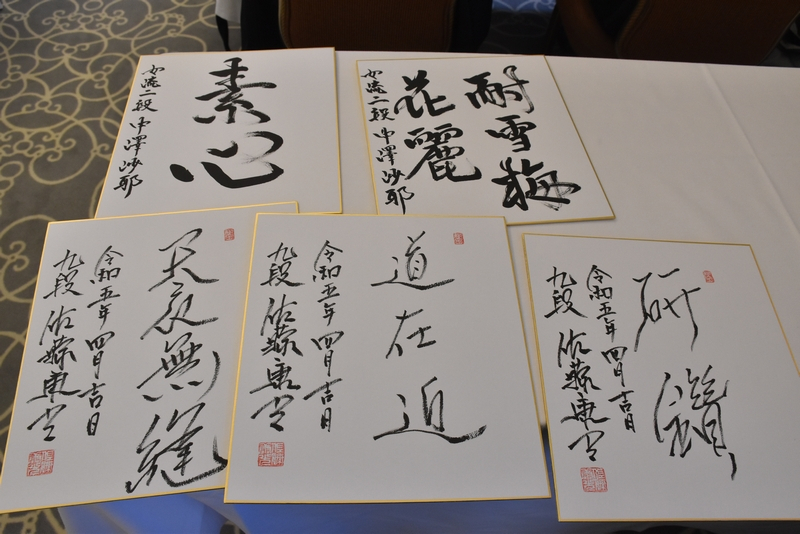 素心
女流二段 中澤沙耶
耐雪梅
花麗
女流二段 中澤沙耶
天衣無縫
令和五年 四月吉日
九段 佐藤康光
道在迩
令和五年 四月吉日
九段 佐藤康光
研鑽
令和五年 四月吉日
九段 佐藤康光